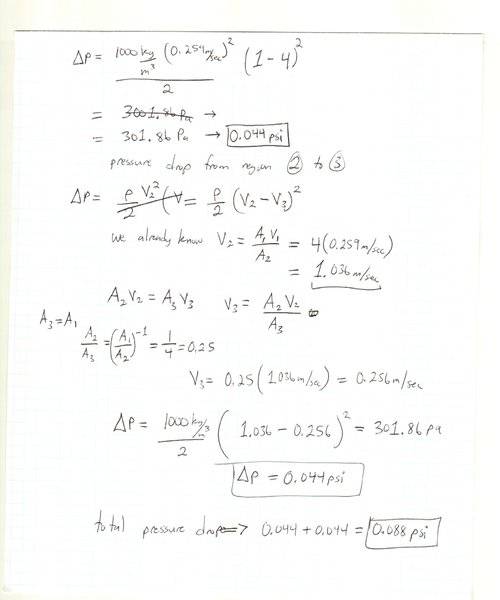 ΔP = 1000 kg/m³ (0.259 m/sec)² / 2 (1-4)²
= 3001.86 Pa →
= 301.86 Pa → 0.044 psi
pressure drop from region ② to ③
ΔP = ρ V₂² / 2 (V = ρ/2 (V₂ - V₃)²
we already know V₂ = A₁V₁ / A₂ = 4(0.259 m/sec)
= 1.036 m/sec
A₂V₂ = A₃V₃ V₃ = A₂V₂ / A₃
A₃ = A₁
A₂/A₃ = (A₁/A₂)⁻¹ = 1/4 = 0.25
V₃ = 0.25 (1.036 m/sec) = 0.256 m/sec
ΔP = 1000 kg/m³ / 2 (1.036 - 0.256)² = 301.86 Pa
ΔP = 0.044 psi
total pressure drop => 0.044 + 0.044 = 0.088 psi